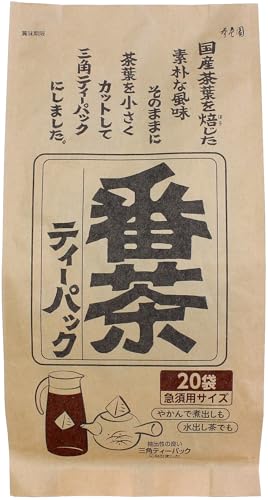 賞味期限
国産茶葉を焙じた
素朴な風味
そのままに
茶葉を小さく
カットして
三角ティーパック
にしました。
番茶
ティーパック
20袋
急須用サイズ
やかんで煮出しも
水出し茶でも
抽出性の良い
三角ティーパック